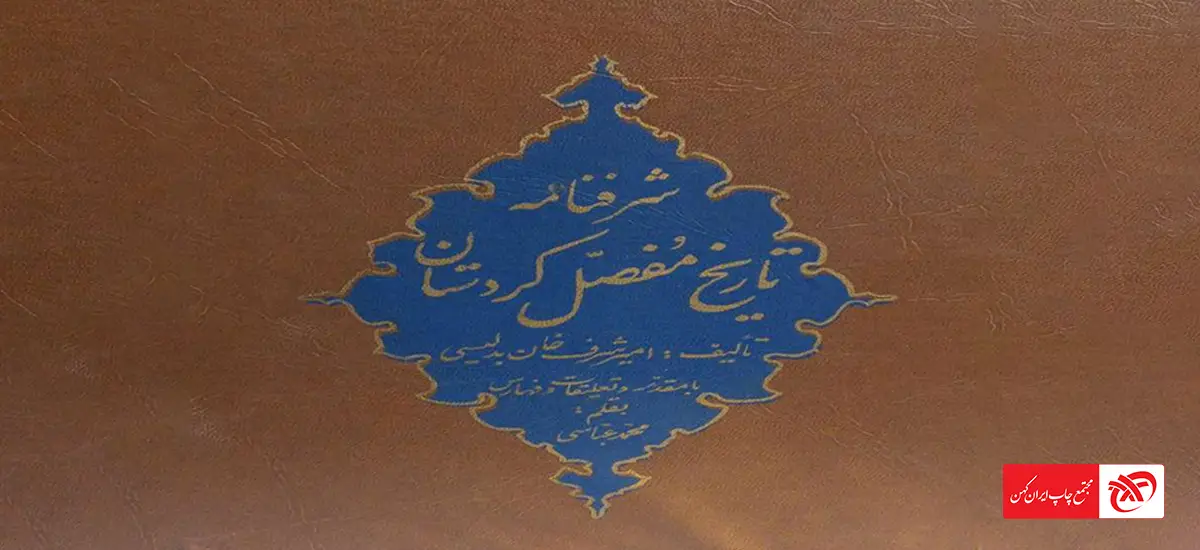 شرفنامه
تاریخ مُفصّل کردستان
تألیف : امیر شرف خان بدلیسی
با مقدمه و تعلیقات و فهارس
بقلم :
محمد عباسی
مجتمع چاپ ایران کهن